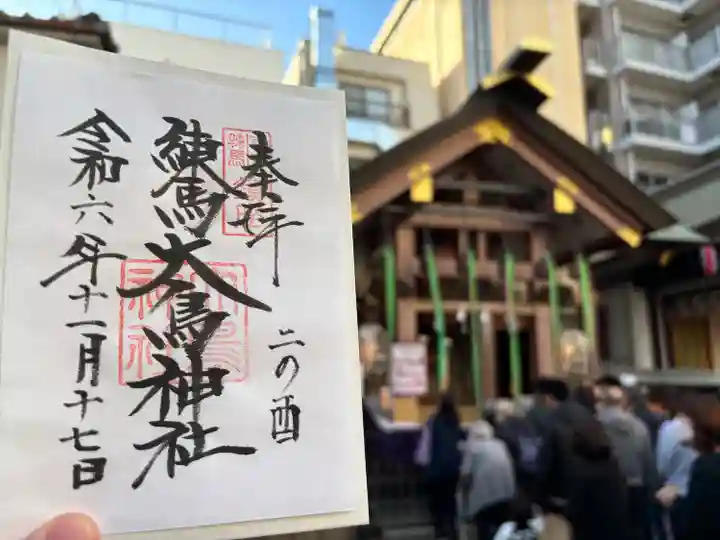 奉拝
二の酉
練馬大鳥神社
令和六年十一月十七日